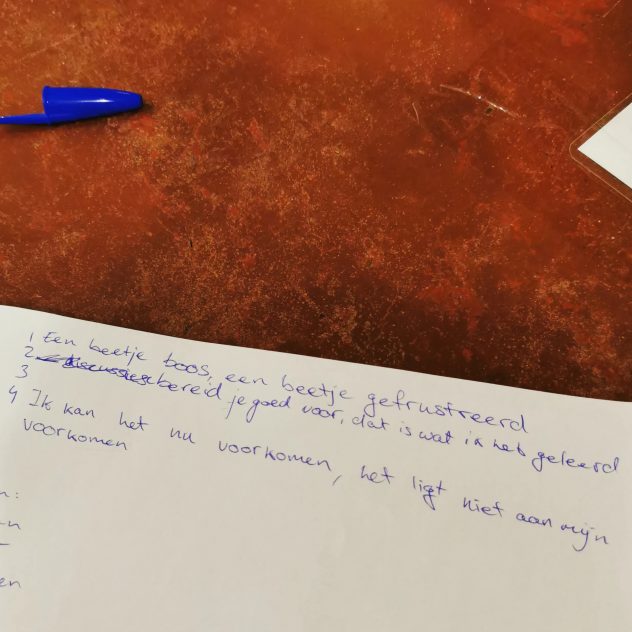 1 Een beetje boos, een beetje gefrustreerd
2 bereid je goed voor, dat is wat ik heb geleerd
3
4 Ik kan het nu voorkomen, het ligt niet aan mijn
voorkomen
n:
en